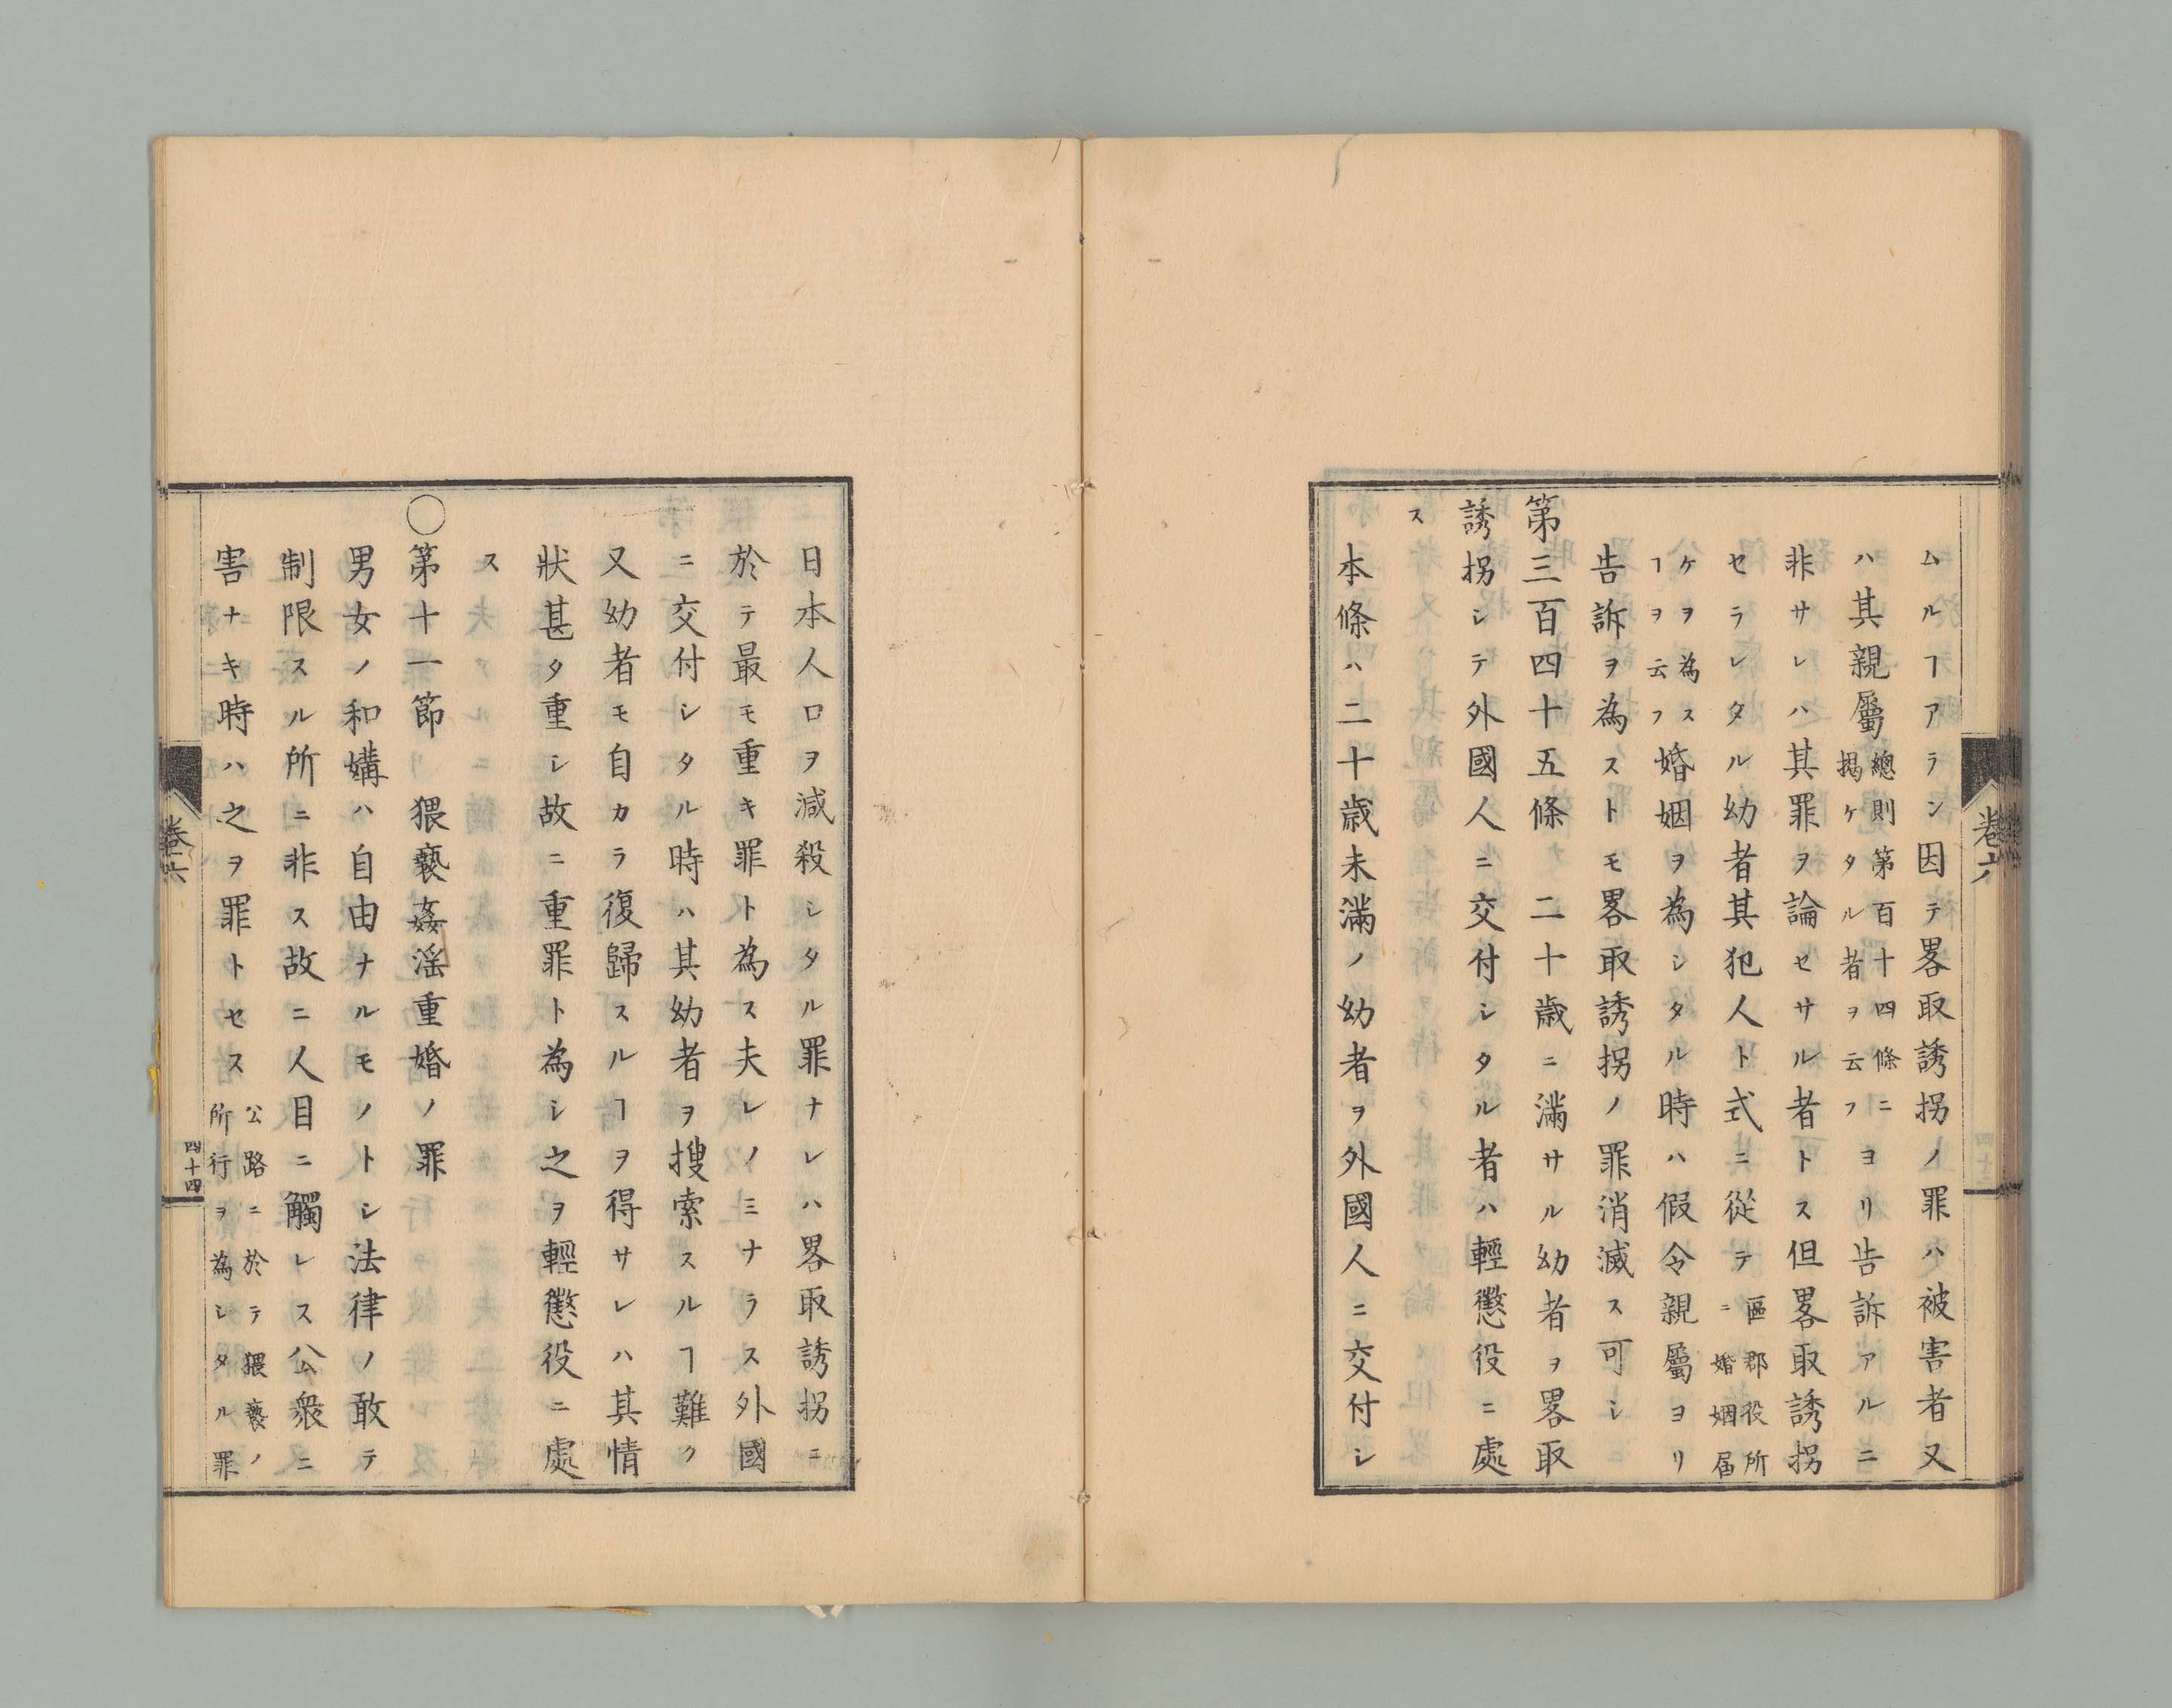 ムルヿアラン因テ畧取誘拐ノ罪ハ被害者又
ハ其親屬總則第百十四條ニ揭ケタル者ヲ云フヨリ告訴アルニ
非サレハ其罪ヲ論セサル者トス但畧取誘拐
セラレタル幼者其犯人ト式ニ從テ區郡役所ニ婚姻届
ケヲ為スヿヲ云フ婚姻ヲ為シタル時ハ假令親屬ヨリ
告訴ヲ為ストモ畧取誘拐ノ罪消滅ス可シ
第三百四十五條 二十歲ニ滿サル幼者ヲ畧取
誘拐シテ外國人ニ交付シタル者ハ輕懲役ニ處
ス
本條ハ二十歲未滿ノ幼者ヲ外國人ニ交付シ
卷六
日本人口ヲ減殺シタル罪ナレハ畧取誘拐ニ
於テ最モ重キ罪ト為ス夫レノミナラス外國
ニ交付シタル時ハ其幼者ヲ搜索スルヿ難ク
又幼者モ自カラ復歸スルヿヲ得サレハ其情
狀甚タ重シ故ニ重罪ト為シ之ヲ輕懲役ニ處
ス
〇第十一節 猥褻姦淫重婚ノ罪
男女ノ和媾ハ自由ナルモノトシ法律ノ敢テ
制限スル所ニ非ス故ニ人目ニ觸レス公衆ニ
害ナキ時ハ之ヲ罪トセス公路ニ於テ猥褻ノ所行ヲ為シタル罪
卷六
四十四